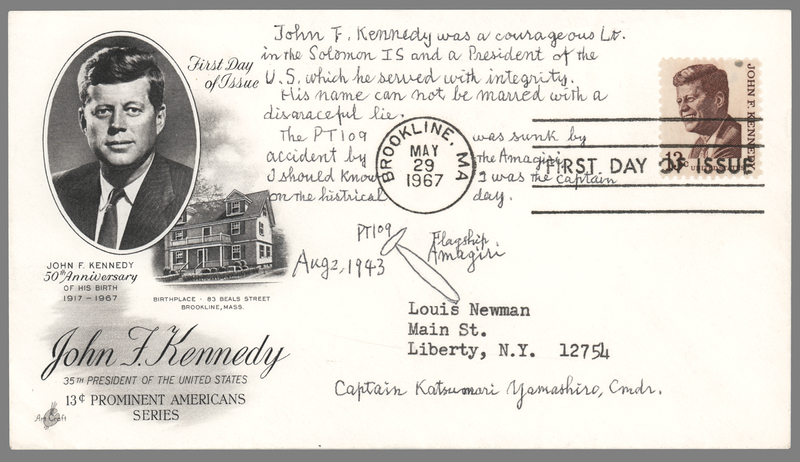 John F. Kennedy was a courageous Lt.
in the Solomon IS and a President of the
U.S. which he served with integrity.
His name can not be marred with a
disgraceful lie.
The PT109 was sunk by
accident by the Amagiri,
I should know I was the captain
on the histrical day.
First Day
of Issue
BROOKLINE, MA
MAY
29
1967
FIRST DAY OF ISSUE
JOHN F. KENNEDY
13¢
PT109
Flagship.
Amagiri
Aug 2, 1943
JOHN F. KENNEDY
50th Anniversary
OF HIS BIRTH
1917 - 1967
BIRTHPLACE - 83 BEALS STREET
BROOKLINE, MASS.
Louis Newman
Main St.
Liberty, N.Y. 12754
John F. Kennedy
35TH PRESIDENT OF THE UNITED STATES
13¢ PROMINENT AMERICANS
SERIES
Art Craft
Captain Katsumori Yamashiro, Cmdr.